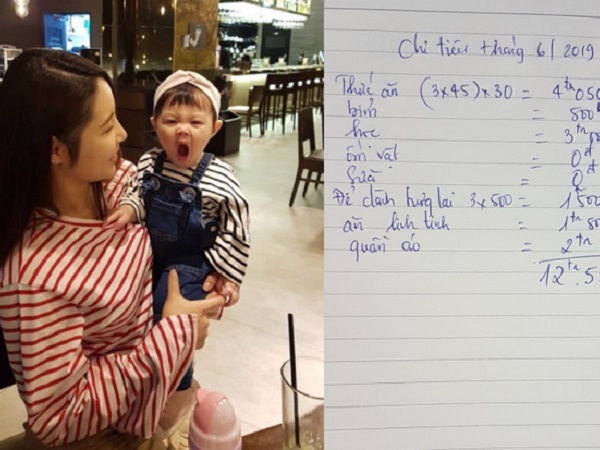 Chi tiêu tháng 6/2019
Thức ăn (3x45)x30 = 4tr050
bỉm = 500
học = 3tr
ốm vặt = 0đ
Sữa = 0đ
Để dành tương lai 3x500 = 1500
ăn linh tinh = 1tr
quần áo = 2tr
12tr.5